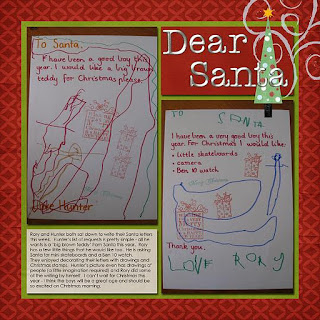 Dear
Santa
To Santa.
I have been a good boy this
year. I would like a big brown
teddy for Christmas please.
Love Hunter
TO SANTA
I have been a very good boy this
year. For Christmas I would like:
• little skateboards
• camera
• Ben 10 watch
Thank you.
LOVE RORY
Rory and Hunter both sat down to write their Santa letters
this week. Hunter's list of requests is pretty simple - all he
wants is a 'big brown teddy' from Santa this year. Rory
has a few little things that he would like too. He is asking
Santa for mini skateboards and a Ben 10 watch.
They enjoyed decorating their letters with drawings and
Christmas stamps. Hunter's picture even has drawings of
people (a little imagination required) and Rory did some
of the writing by himself. I can't wait for Christmas this
year - I think the boys will be a great age and should be
so excited on Christmas morning.